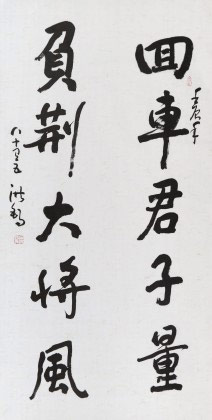 回車君子量
壬辰年
負荆大將風
八十五